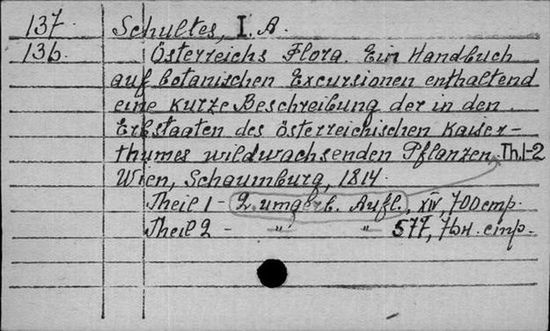 137. Schultes, I. A.
136. Österreichs Flora. Ein Handbuch
auf botanischen Excursionen enthaltend
eine kurze Beschreibung der in den
Erbstaaten des österreichischen Kaiser-
thumes wildwachsenden Pflanzen. Th. 1-2
Wien, Schaumburg, 1814.
Theil 1 - 2. umgerb. Aufl., XIV, 700 стр.
Theil 2 - " " 577, табл. стр.